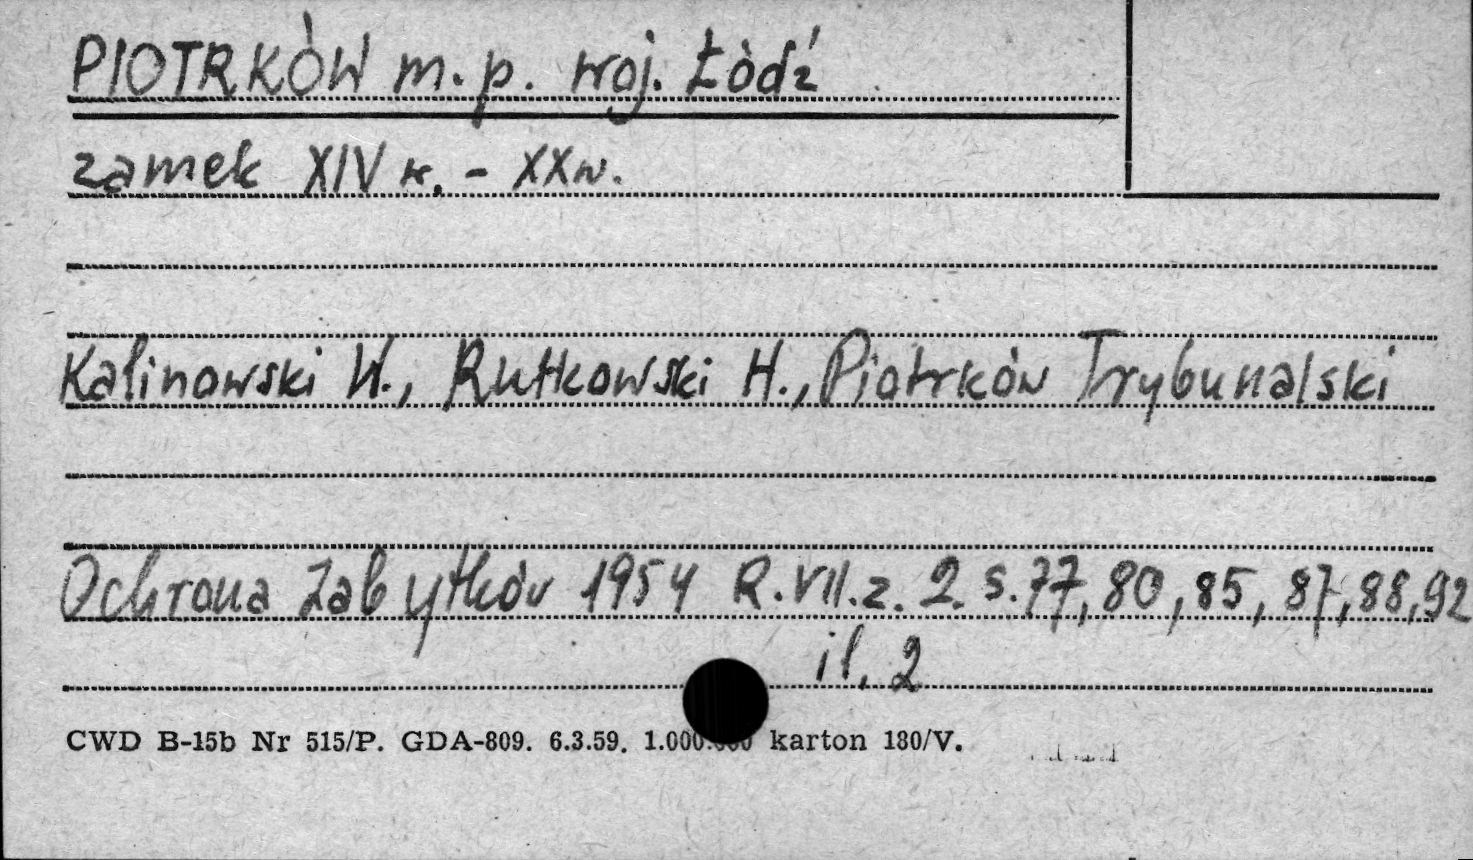 PIOTRKÓW m. p. woj. Łódź
zamek XIV w. - XX w.
Kalinowski W., Rutkowski H., Piotrków Trybunalski
Ochrona Zabytków 1954 R. VII. z. 2. s. 77, 80, 85, 87, 88, 92
il. 2
CWD B-15b Nr 515/P. GDA-809. 6.3.59. 1.000.000 karton 180/V.